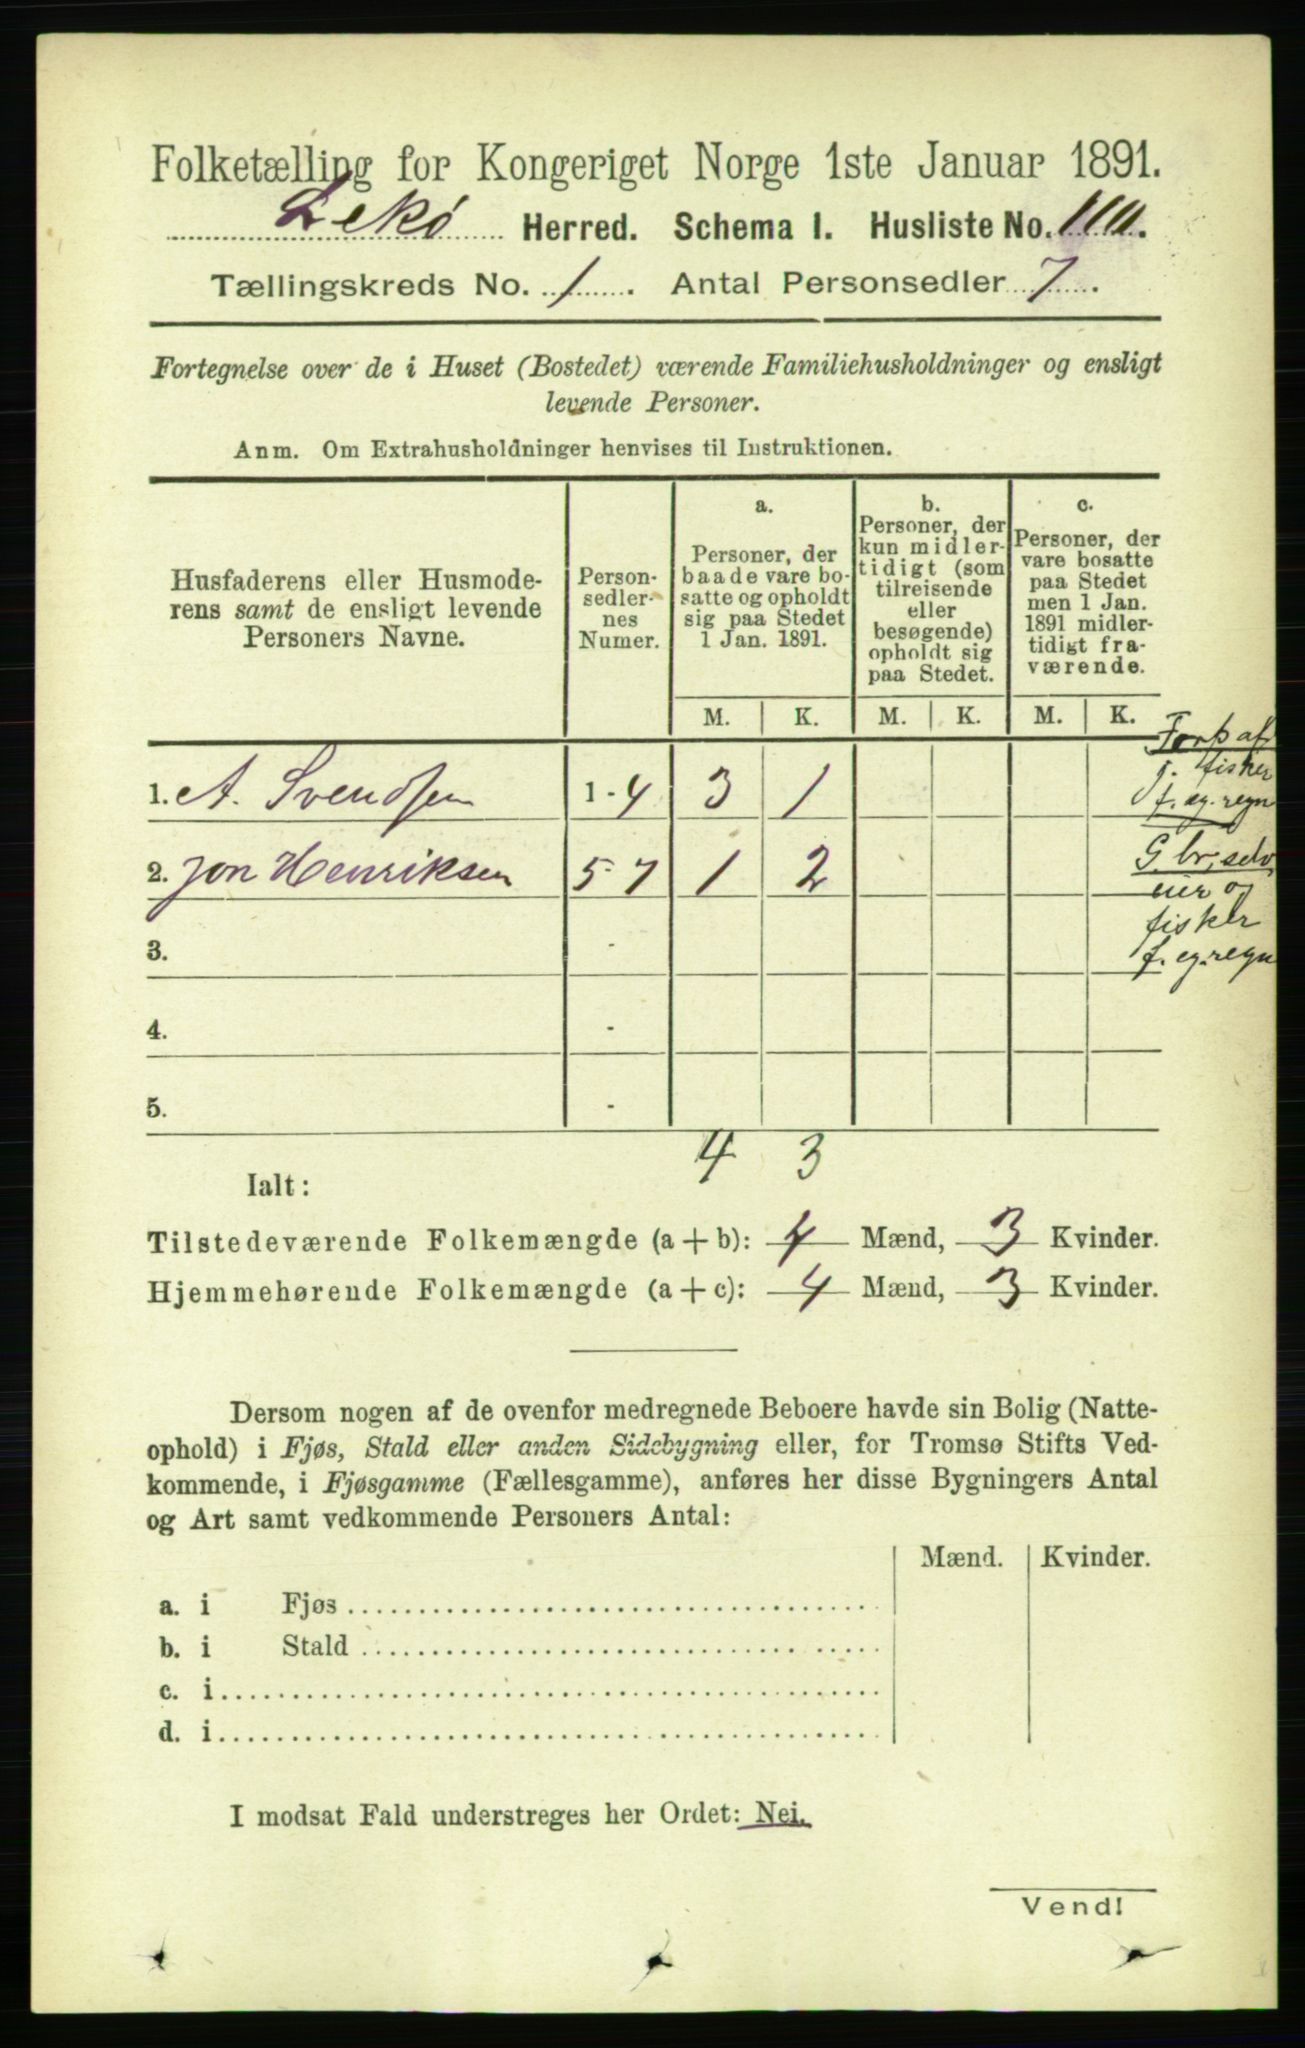 Folketælling for Kongeriget Norge 1ste Januar 1891.
Lekø Herred. Schema I. Husliste No.
Tællingskreds No. 1. Antal Personsedler 7.
Fortegnelse over de i Huset (Bostedet) værende Familiehusholdninger og ensligt
levende Personer.
Anm. Om Extrahusholdninger henvises til Instruktionen.
Husfaderens eller Husmode-
rens samt de ensligt levende
Personers Navne.
Person-
sedler-
nes
Numer.
a.
Personer, der
baade vare bo-
satte og opholdt
sig paa Stedet
1 Jan. 1891.
b.
Personer, der
kun midler-
tidigt (som
tilreisende
eller
besøgende)
opholdt sig
paa Stedet.
c.
Personer, der
vare bosatte
paa Stedet
men 1 Jan.
1891 midler-
tidigt fra-
værende.
M. K. M. K. M. K.
1. A. Svendsen 1-4 3 1
2. Jon Henriksen 5-7 1 2
3. -
4. -
5. -
Forp af
j. fisker
f. eg. regn
G. br, selv
eier og
fisker
f. eg. regn
4 3
Ialt:
Tilstedeværende Folkemængde (a + b): 4 Mænd, 3 Kvinder.
Hjemmehørende Folkemængde (a + c): 4 Mænd, 3 Kvinder.
Dersom nogen af de ovenfor medregnede Beboere havde sin Bolig (Natte-
ophold) i Fjøs, Stald eller anden Sidebygning eller, for Tromsø Stifts Ved-
kommende, i Fjøsgamme (Fællesgamme), anføres her disse Bygningers Antal
og Art samt vedkommende Personers Antal:
Mænd. Kvinder.
a. i Fjøs
b. i Stald
c. i
d. i
I modsat Fald understreges her Ordet: Nei.
Vend!